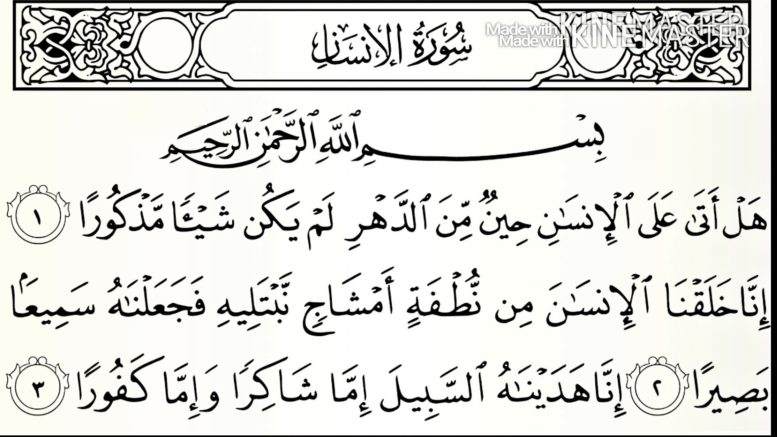 سُورَةُ الإِنسَانِ
Made with KINEMASTER
Made with KINEMASTER
بِسْمِ اللَّهِ الرَّحْمَٰنِ الرَّحِيمِ
هَلْ أَتَىٰ عَلَى ٱلْإِنسَٰنِ حِينٌ مِّنَ ٱلدَّهْرِ لَمْ يَكُن شَيْـًٔا مَّذْكُورًا ١
إِنَّا خَلَقْنَا ٱلْإِنسَٰنَ مِن نُّطْفَةٍ أَمْشَاجٍ نَّبْتَلِيهِ فَجَعَلْنَٰهُ سَمِيعًۢا
بَصِيرًا ٢ إِنَّا هَدَيْنَٰهُ ٱلسَّبِيلَ إِمَّا شَاكِرًا وَإِمَّا كَفُورًا ٣